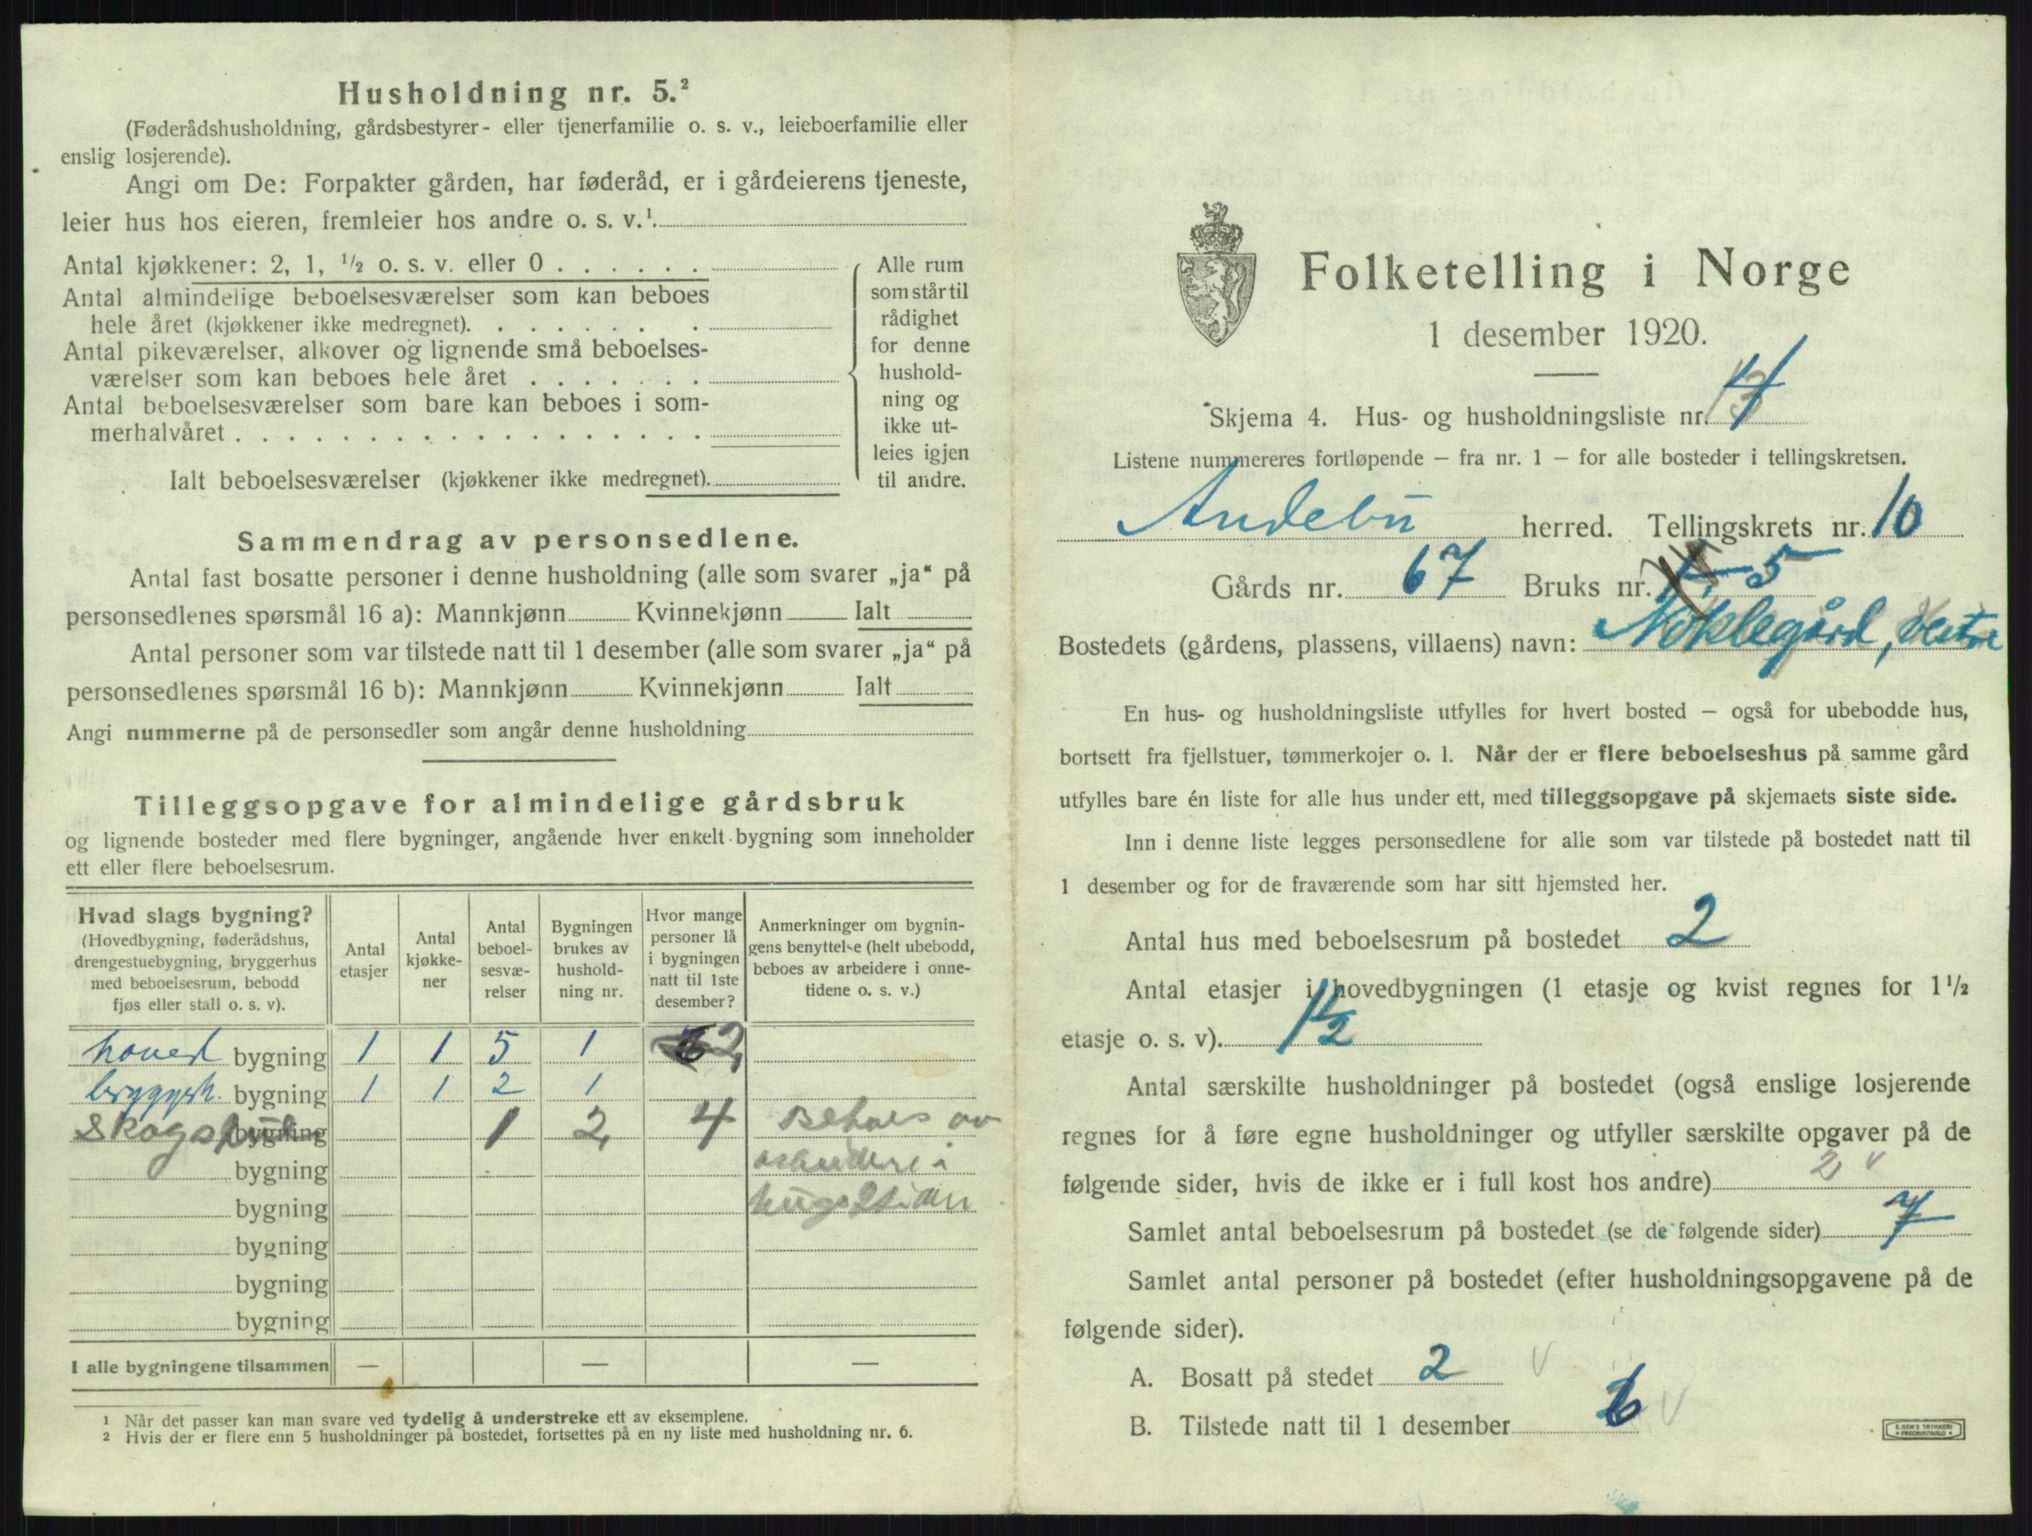 Husholdning nr. 5.²
(Føderådshusholdning, gårdsbestyrer- eller tjenerfamilie o. s. v., leieboerfamilie eller
enslig losjerende).
Angi om De: Forpakter gården, har føderåd, er i gårdeierens tjeneste,
leier hus hos eieren, fremleier hos andre o. s. v.¹
Antal kjøkkener: 2, 1, ½ o. s. v. eller 0 . . . . . .
Antal almindelige beboelsesværelser som kan beboes
hele året (kjøkkener ikke medregnet). . . . . . . .
Antal pikeværelser, alkover og lignende små beboelses-
værelser som kan beboes hele året . . . . . . .
Antal beboelsesværelser som bare kan beboes i som-
merhalvåret . . . . . . . . . . . . . . . . . .
Ialt beboelsesværelser (kjøkkener ikke medregnet).
Alle rum
som står til
rådighet
for denne
hushold-
ning og
ikke ut-
leies igjen
til andre.
Sammendrag av personsedlene.
Antal fast bosatte personer i denne husholdning (alle som svarer „ja“ på
personsedlenes spørsmål 16 a): Mannkjønn Kvinnekjønn Ialt
Antal personer som var tilstede natt til 1 desember (alle som svarer „ja“ på
personsedlenes spørsmål 16 b): Mannkjønn Kvinnekjønn Ialt
Angi nummerne på de personsedler som angår denne husholdning
Tilleggsopgave for almindelige gårdsbruk
og lignende bosteder med flere bygninger, angående hver enkelt bygning som inneholder
ett eller flere beboelsesrum.
Hvad slags bygning?
(Hovedbygning, føderådshus,
drengestuebygning, bryggerhus
med beboelsesrum, bebodd
fjøs eller stall o. s. v).
Antal
etasjer
Antal
kjøkke-
ner
Antal
beboel-
sesvæ-
relser
Bygningen
brukes av
hushold-
ning nr.
Hvor mange
personer lå
i bygningen
natt til 1ste
desember?
Anmerkninger om bygnin-
gens benyttelse (helt ubebodd,
beboes av arbeidere i onne-
tidene o. s. v.)
hoved bygning 1 1 5 1 2
bryggerh. bygning 1 1 2 1
Skogshus bygning 1 2 4 Beboes av
bygning arbeidere i
bygning hugstiden
bygning
bygning
bygning
I alle bygningene tilsammen — — —
1 Når det passer kan man svare ved tydelig å understreke ett av eksemplene.
2 Hvis der er flere enn 5 husholdninger på bostedet, fortsettes på en ny liste med husholdning nr. 6.
Folketelling i Norge
1 desember 1920.
Skjema 4. Hus- og husholdningsliste nr. 4
Listene nummereres fortløpende — fra nr. 1 — for alle bosteder i tellingskretsen.
Andebu herred. Tellingskrets nr. 10
Gårds nr. 67 Bruks nr. 5
Bostedets (gårdens, plassens, villaens) navn: Nøklegård, Vestre
En hus- og husholdningsliste utfylles for hvert bosted — også for ubebodde hus,
bortsett fra fjellstuer, tømmerkojer o. l. Når der er flere beboelseshus på samme gård
utfylles bare én liste for alle hus under ett, med tilleggsopgave på skjemaets siste side.
Inn i denne liste legges personsedlene for alle som var tilstede på bostedet natt til
1 desember og for de fraværende som har sitt hjemsted her.
Antal hus med beboelsesrum på bostedet 2
Antal etasjer i hovedbygningen (1 etasje og kvist regnes for 1½
etasje o. s. v). 1½
Antal særskilte husholdninger på bostedet (også enslige losjerende
regnes for å føre egne husholdninger og utfyller særskilte opgaver på de
følgende sider, hvis de ikke er i full kost hos andre) 2 v
Samlet antal beboelsesrum på bostedet (se de følgende sider) 7
Samlet antal personer på bostedet (efter husholdningsopgavene på de
følgende sider).
A. Bosatt på stedet 2 v
B. Tilstede natt til 1 desember 6 v